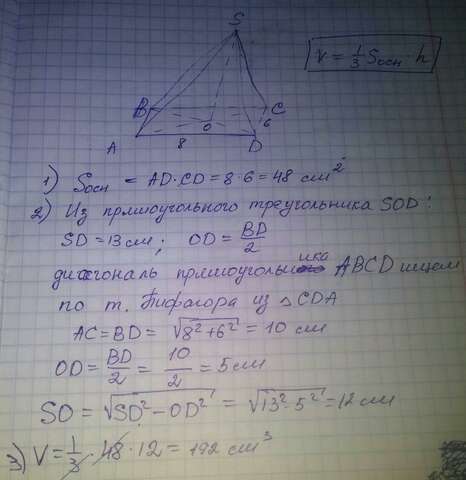 S
V = 1/3 Sосн · h
B
C
O
6
A
8
D
1) Sосн = AD·CD = 8·6 = 48 см²
2) Из прямоугольного треугольника SOD:
SD = 13 см; OD = BD/2
диагональ прямоугольника ABCD ищем
по т. Пифагора из △CDA
AC = BD = √8²+6² = 10 см
OD = BD/2 = 10/2 = 5 см
SO = √SD²-OD² = √13²-5² = 12 см
3) V = 1/3 · 48 · 12 = 192 см³